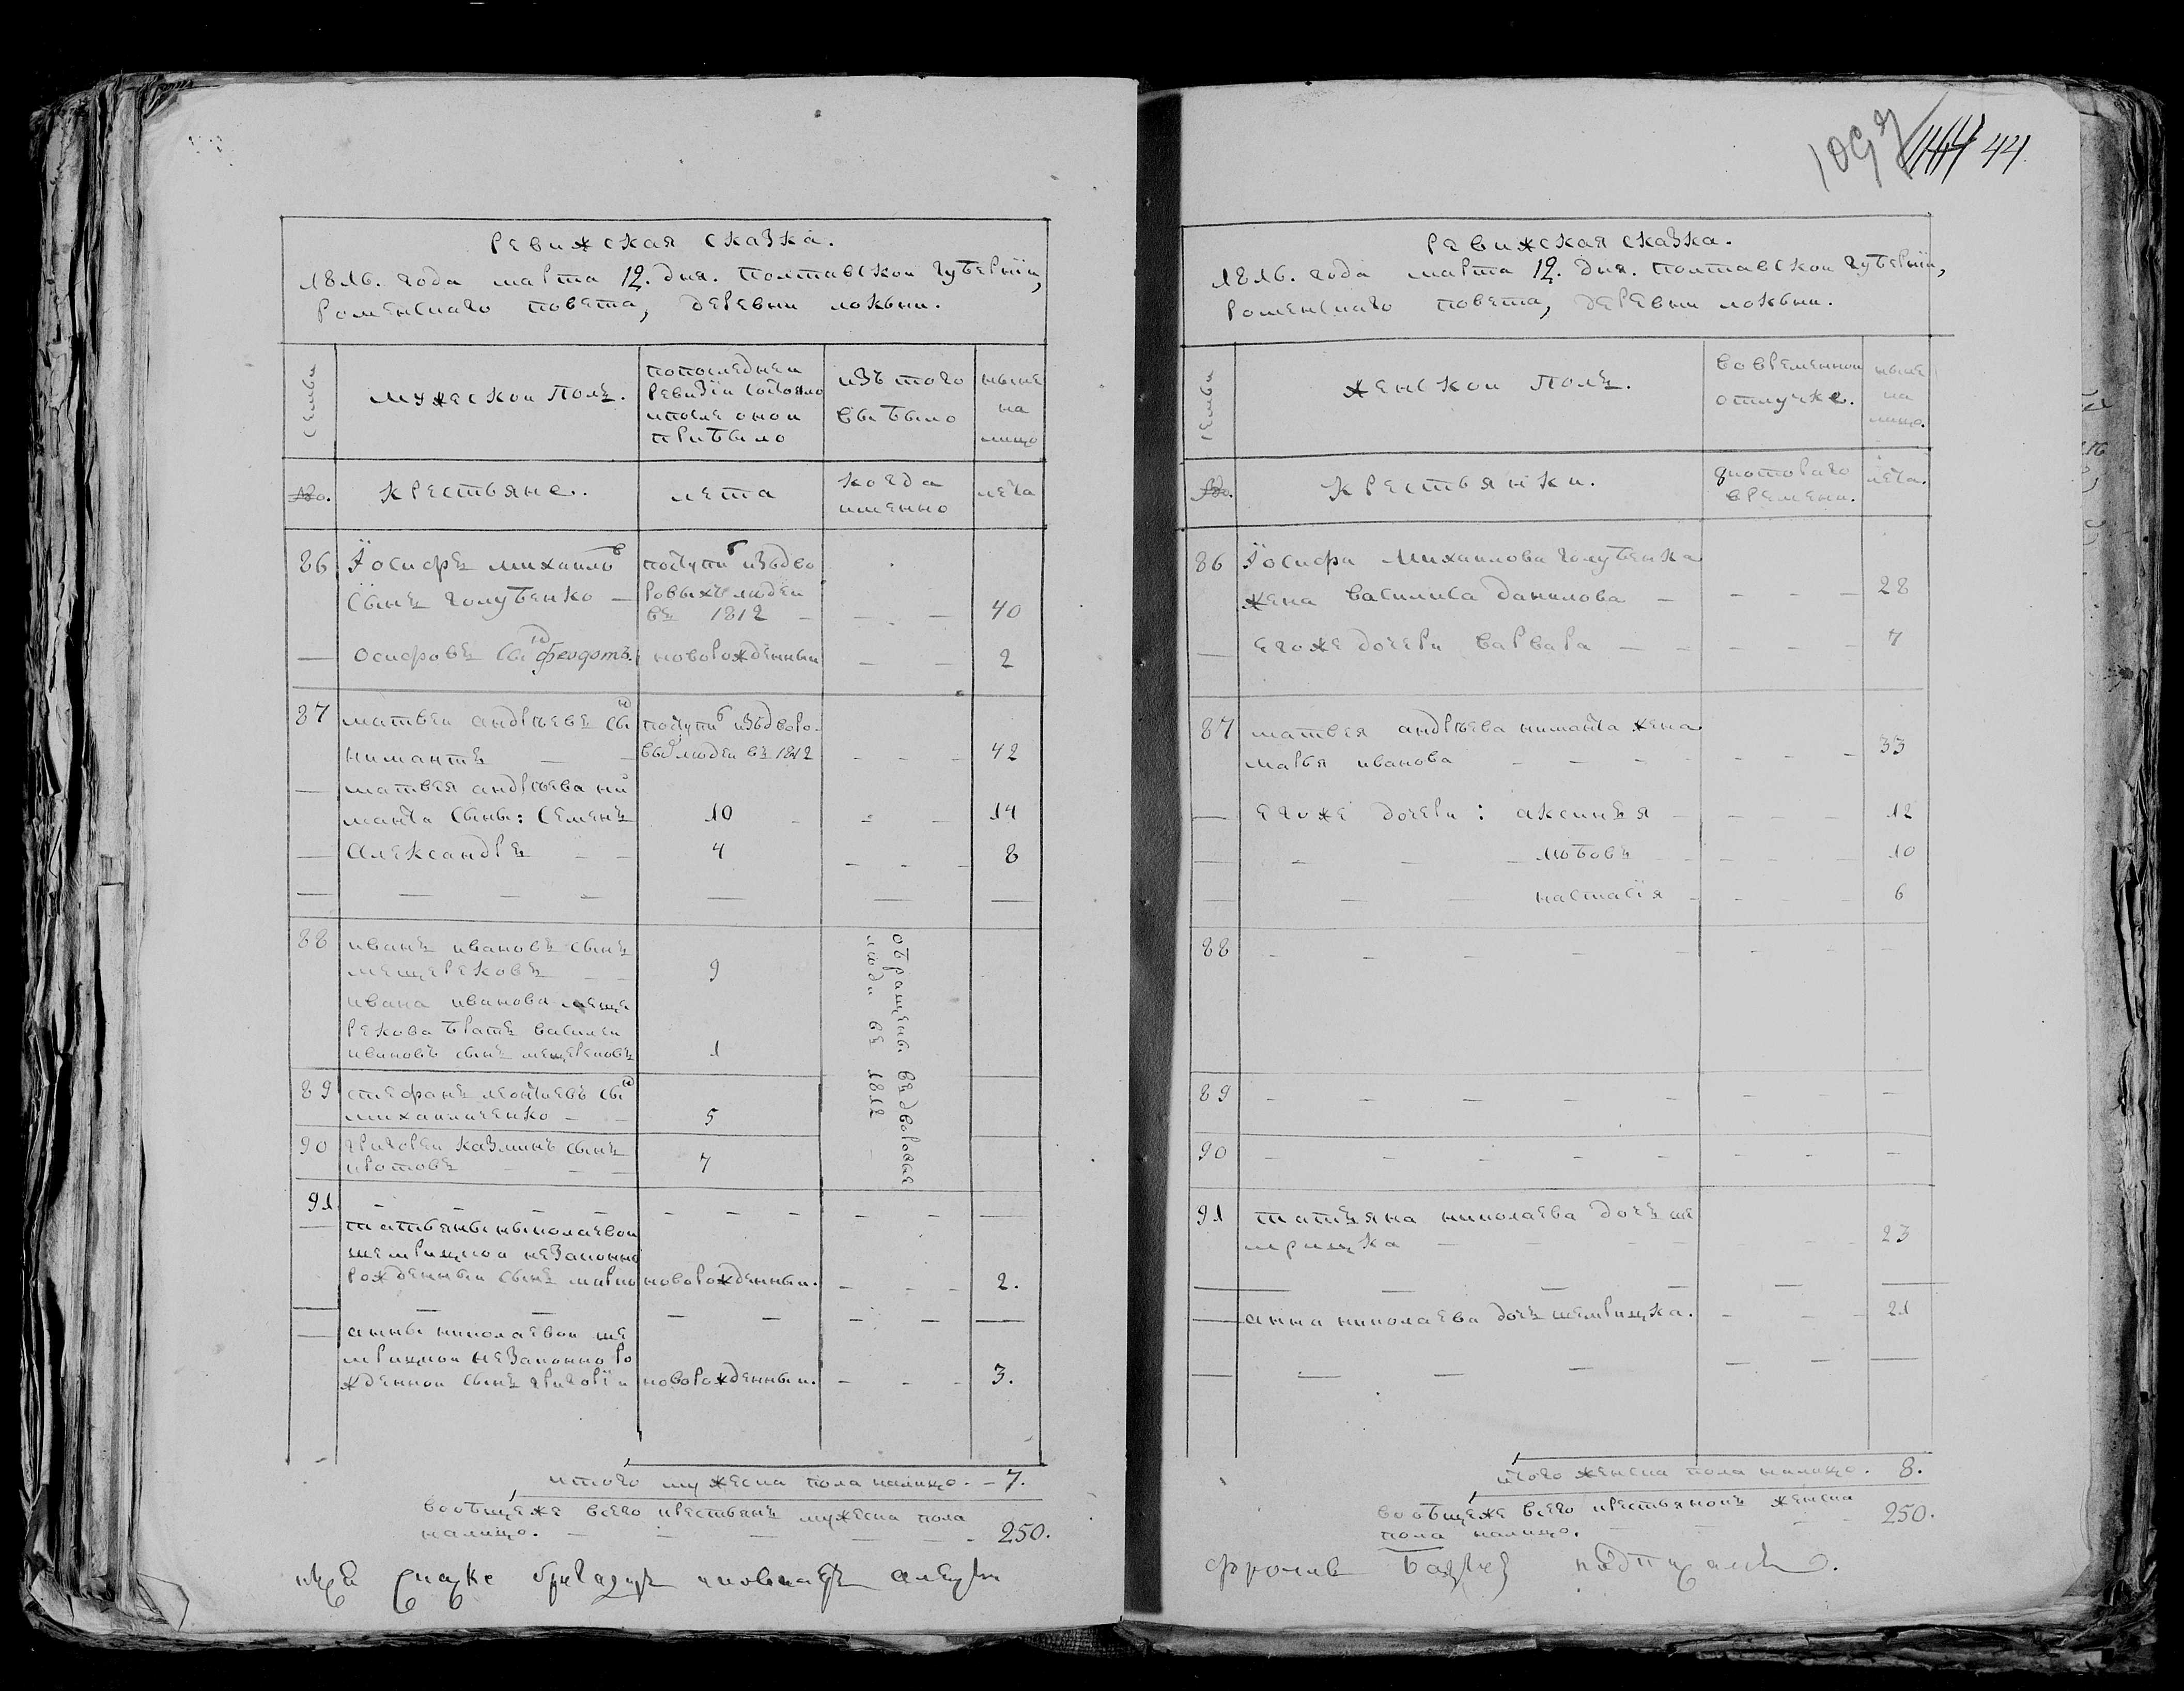 Ревижская сказка.
1816. года марта 12. дня. Полтавской губернїи,
роменскаго повета, деревни локвни.
семьи
мужеской Полъ.
попоследней
ревизїи состояло
ипосле оной
прибыло
изъ того
выбыло
ныне
на
лицо
№.
крестьяне.
лета
когда
именно
лета
86
Їосифъ михайловъ
сынъ голубенко —
поступил издво
ровыхъ людей
въ 1812
40
осифовъ сынъ феодотъ.
новорожденный
2
87
матвей андрѣевъ сынъ
нимантъ
поступил издворо-
вых людей въ 1812
42
матвея андрѣева ни
манта сыны: семенъ
10
14
Александръ
4
8
88
иванъ ивановъ сынъ
мещерековъ
9
ивана иванова меще
рекова братъ василей
ивановъ сынъ мещерековъ
1
обращены въ дворовыя
люди въ 1812
89
стефанъ леонтьевъ сынъ
михайличенко
5
90
григорей казминъ сынъ
кротовъ
7
91
татьяны николаевой
шемрицкой незаконно
рожденный сынъ марко
новорожденный.
2.
анны николаевой ше
мрицкой незаконно ро
жденной сынъ григорїй
новорожденный.
3.
итого мужеска пола налицо. — 7.
вообщеже всего крестьянъ мужеска пола
налицо. 250.
сказке
1097 44.
Ревижская сказка.
1816. года марта 12. дня. Полтавской губернїи,
роменскаго повета, деревни локвни.
семьи
женской полъ.
вовременной
отлучке.
ныне
на
лицо.
№.
крестьянки.
скотораго
времени.
лета.
86
Їосифа Михайлова голубенка
жена василиса данилова
28
егоже дочери варвара
7
87
матвея андрѣева ниманта жена
марья иванова
33
егоже дочери: аксинья
12
любовь
10
настасїя
6
88
89
90
91
татьяна николаева дочь ше
мрицка
23
анна николаева дочь шемрицка.
21
итого женска пола налицо. 8.
вообщеже всего крестьянокъ женска
пола налицо. 250.
подписался.